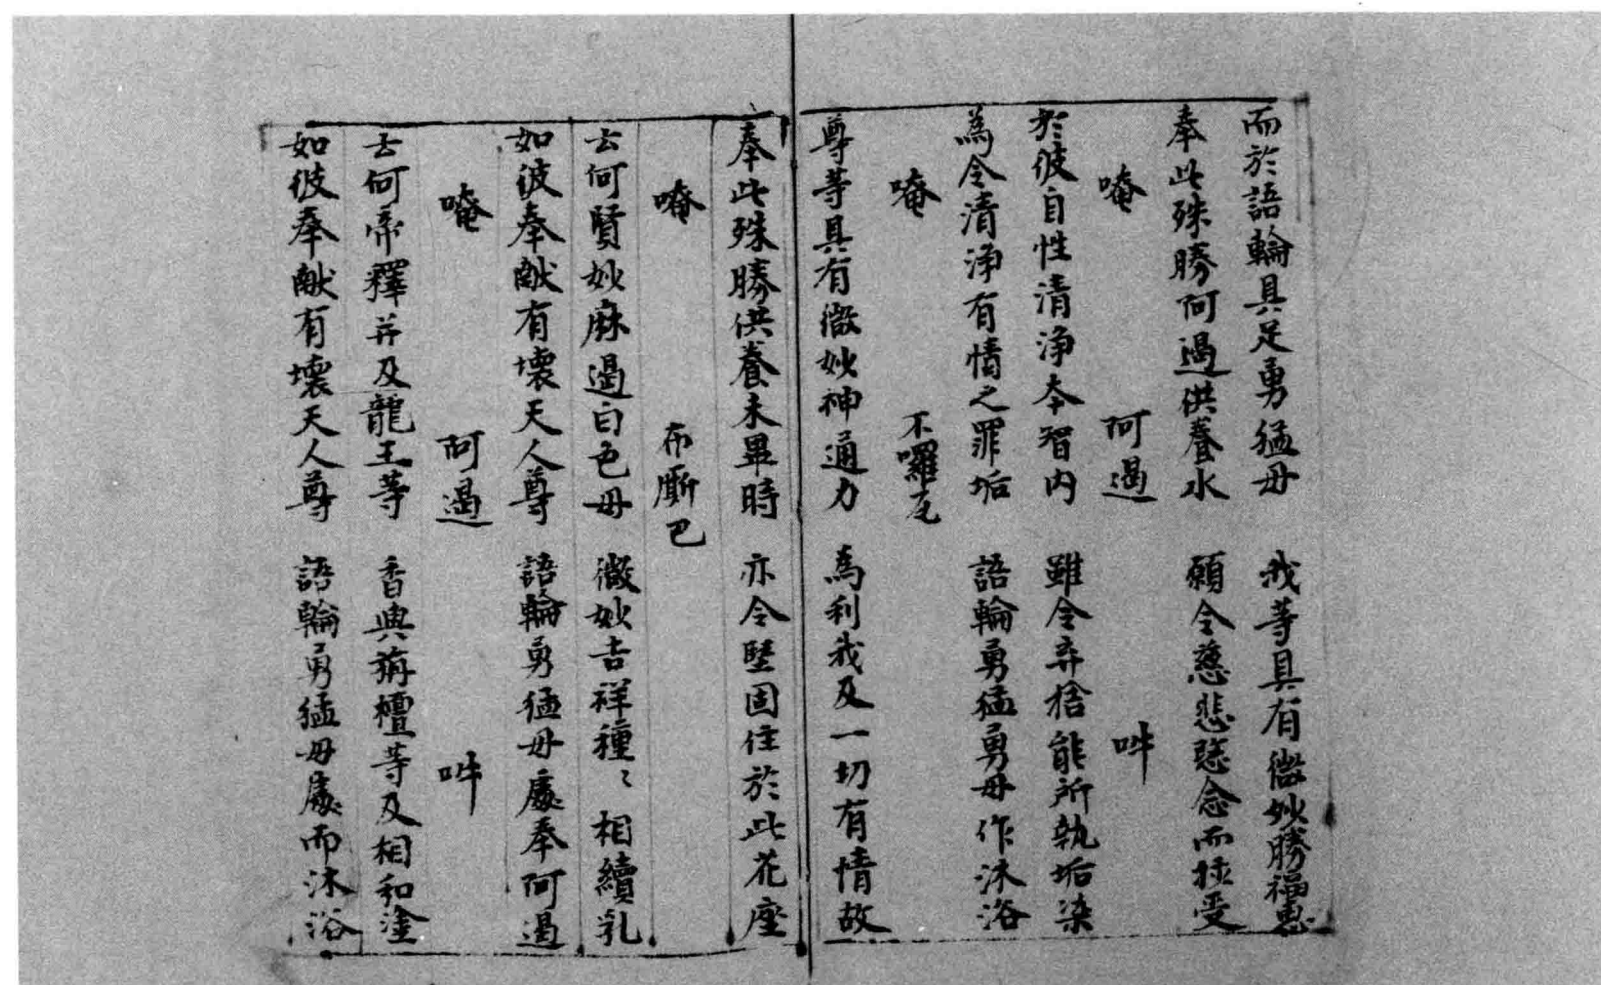 而於語輪具足勇猛母　我等具有微妙勝福惠
奉此殊勝阿遏供養水　願令慈悲愍念而攝受
唵　阿遏　吽
於彼自性清淨本智內　雖令弃捨能所執垢染
為令清淨有情之罪垢　語輪勇猛勇母作沐浴
唵　不囉
尊等具有微妙神通力　為利我及一切有情故
奉此殊勝供養未畢時　亦令堅固住於此花座
唵　布厮巴
云何賢妙麻遏白色母　微妙吉祥種〻相續乳
如彼奉獻有壞天人尊　語輪勇猛母處奉阿遏
唵　阿遏　吽
云何帝釋并及龍王等　香與旃檀等及相和塗
如彼奉獻有壞天人尊　語輪勇猛母處而沐浴